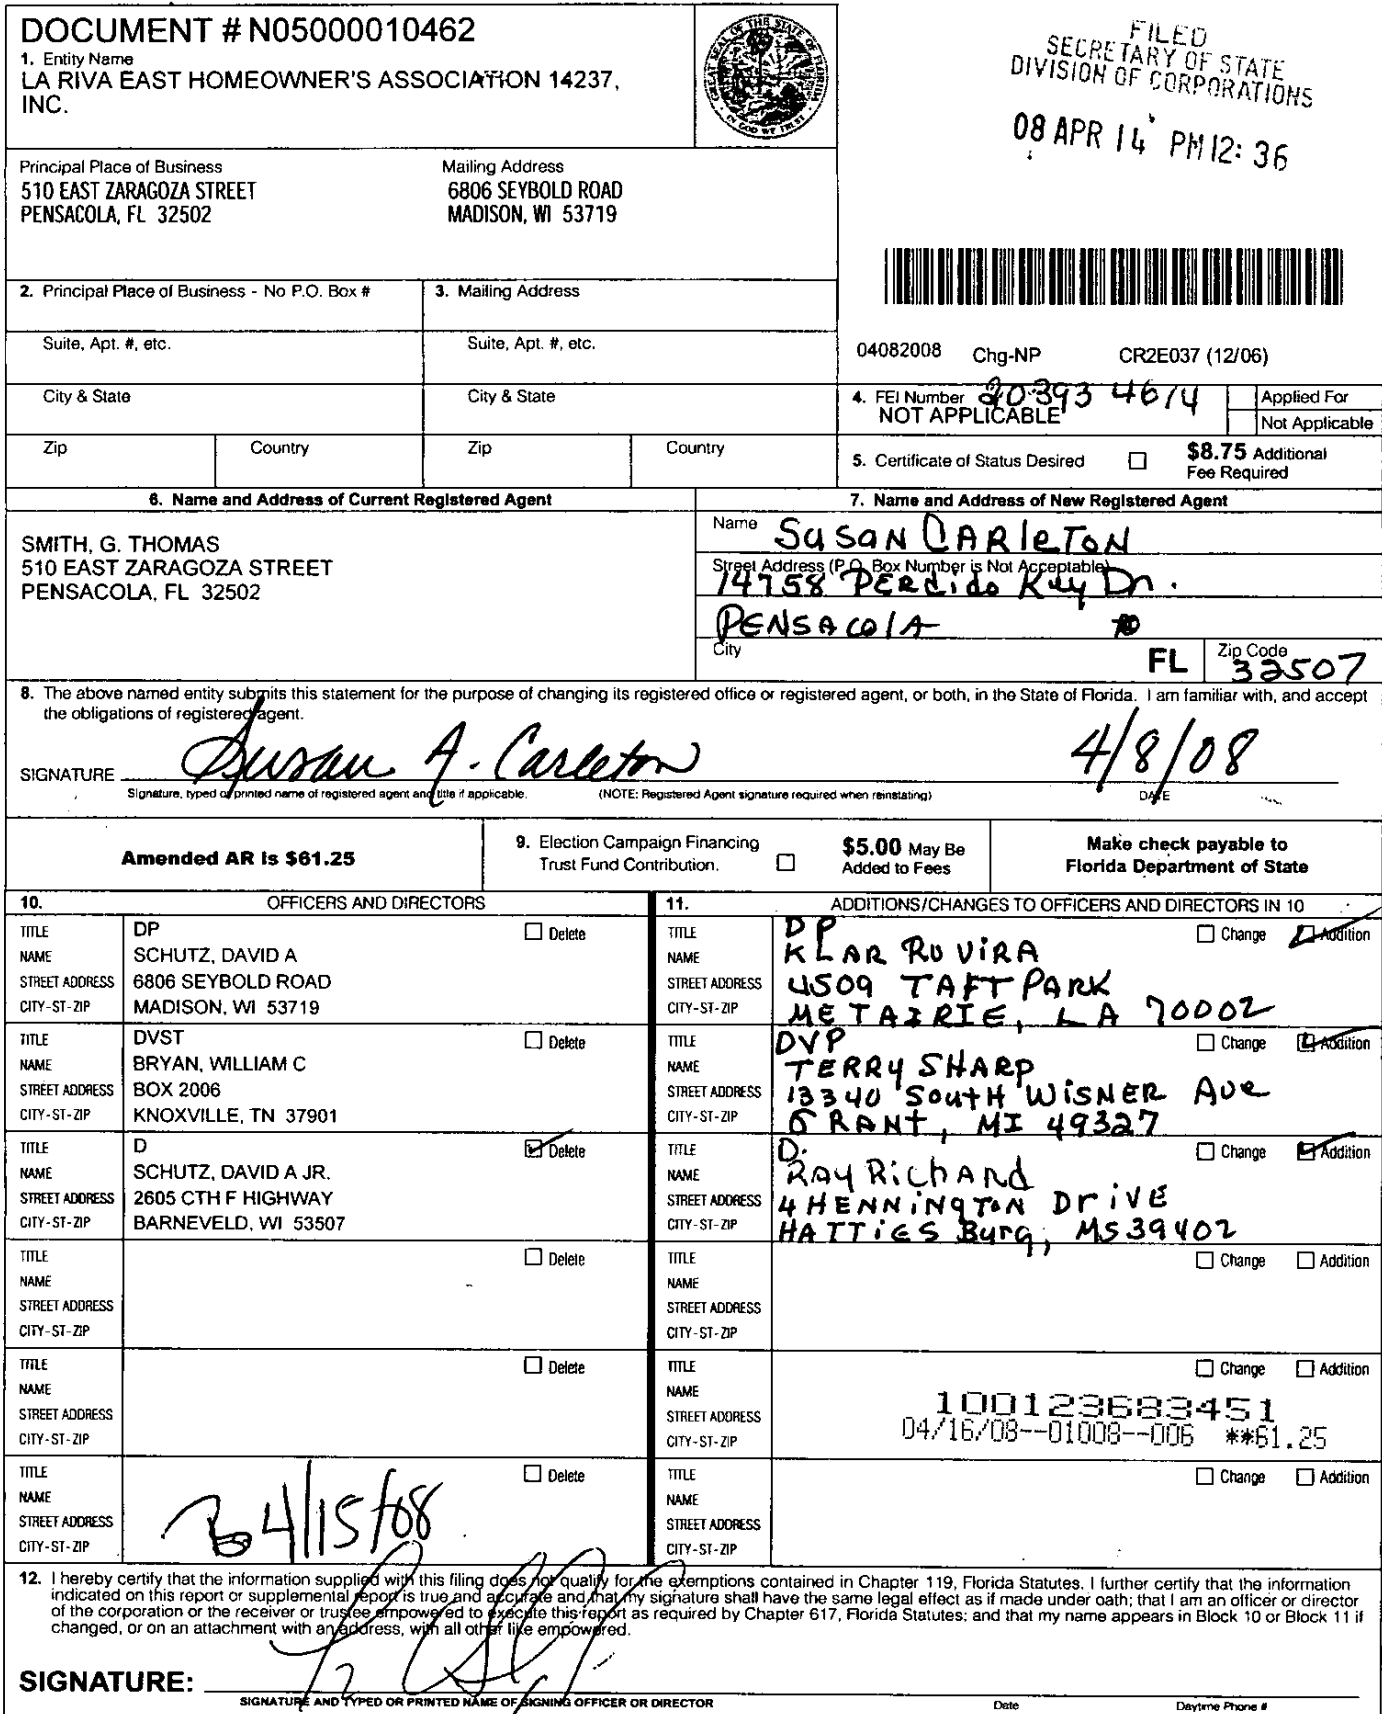 DOCUMENT # N05000010462
1. Entity Name
LA RIVA EAST HOMEOWNER'S ASSOCIATION 14237,
INC.
GREAT SEAL OF THE STATE OF FLORIDA
IN GOD WE TRUST
FILED
SECRETARY OF STATE
DIVISION OF CORPORATIONS
08 APR 14 PM 12: 36
Principal Place of Business
510 EAST ZARAGOZA STREET
PENSACOLA, FL 32502
Mailing Address
6806 SEYBOLD ROAD
MADISON, WI 53719
2. Principal Place of Business - No P.O. Box #
3. Mailing Address
Suite, Apt. #, etc.
Suite, Apt. #, etc.
City & State
City & State
Zip
Country
Zip
Country
04082008 Chg-NP CR2E037 (12/06)
4. FEI Number 20-393 4614
NOT APPLICABLE
Applied For
Not Applicable
5. Certificate of Status Desired
$8.75 Additional
Fee Required
6. Name and Address of Current Registered Agent
SMITH, G. THOMAS
510 EAST ZARAGOZA STREET
PENSACOLA, FL 32502
7. Name and Address of New Registered Agent
Name SUSAN CARleTON
Street Address (P.O. Box Number is Not Acceptable)
14758 PERdido Key Dr.
PENSACOlA
City
FL
Zip Code
32507
8. The above named entity submits this statement for the purpose of changing its registered office or registered agent, or both, in the State of Florida. I am familiar with, and accept
the obligations of registered agent.
SIGNATURE Susan A. Carleton 4/8/08
Signature, typed or printed name of registered agent and title if applicable. (NOTE: Registered Agent signature required when reinstating) DATE
Amended AR is $61.25
9. Election Campaign Financing
Trust Fund Contribution.
$5.00 May Be
Added to Fees
Make check payable to
Florida Department of State
10. OFFICERS AND DIRECTORS
TITLE DP Delete
NAME SCHUTZ, DAVID A
STREET ADDRESS 6806 SEYBOLD ROAD
CITY-ST-ZIP MADISON, WI 53719
TITLE DVST Delete
NAME BRYAN, WILLIAM C
STREET ADDRESS BOX 2006
CITY-ST-ZIP KNOXVILLE, TN 37901
TITLE D Delete
NAME SCHUTZ, DAVID A JR.
STREET ADDRESS 2605 CTH F HIGHWAY
CITY-ST-ZIP BARNEVELD, WI 53507
TITLE Delete
NAME
STREET ADDRESS
CITY-ST-ZIP
TITLE Delete
NAME
STREET ADDRESS
CITY-ST-ZIP
TITLE Delete
NAME
STREET ADDRESS 4/15/08
CITY-ST-ZIP
11. ADDITIONS/CHANGES TO OFFICERS AND DIRECTORS IN 10
TITLE DP Change Addition
NAME KLAR ROVIRA
STREET ADDRESS 4509 TAFT PARK
CITY-ST-ZIP METAIRIE, LA 70002
TITLE DVP Change Addition
NAME TERRY SHARP
STREET ADDRESS 13340 South WiSNER Ave
CITY-ST-ZIP GRANT, MI 49327
TITLE D. Change Addition
NAME RAY RiChARd
STREET ADDRESS 4 HENNiNgTON DriVE
CITY-ST-ZIP HATTiES Burg, MS 39402
TITLE Change Addition
NAME
STREET ADDRESS
CITY-ST-ZIP
TITLE Change Addition
NAME
STREET ADDRESS 100123683451
CITY-ST-ZIP 04/16/08--01008--006 **61.25
TITLE Change Addition
NAME
STREET ADDRESS
CITY-ST-ZIP
12. I hereby certify that the information supplied with this filing does not qualify for the exemptions contained in Chapter 119, Florida Statutes. I further certify that the information
indicated on this report or supplemental report is true and accurate and that my signature shall have the same legal effect as if made under oath; that I am an officer or director
of the corporation or the receiver or trustee empowered to execute this report as required by Chapter 617, Florida Statutes; and that my name appears in Block 10 or Block 11 if
changed, or on an attachment with an address, with all other like empowered.
SIGNATURE:
SIGNATURE AND TYPED OR PRINTED NAME OF SIGNING OFFICER OR DIRECTOR Date Daytime Phone #